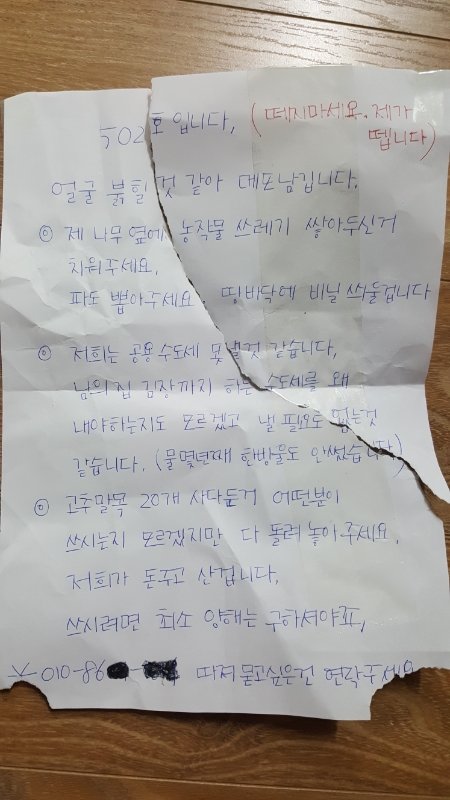 502호입니다, (떼지마세요. 제가
뗍니다)
얼굴 붉힐 것 같아 메모남깁니다.
◎ 제 나무 옆에 농작물 쓰레기 쌓아두신거
치워주세요.
파도 뽑아주세요. 땅바닥에 비닐 씌울겁니다
◎ 저희는 공용수도세 못낼것 같습니다,
남의 집 김장까지 하는 수도세를 왜
내야하는지도 모르겠고 낼 필요도 없는것
같습니다. (물몇년째 한방울도 안썼습니다)
◎ 고추말목 20개 사다둔거 어떤분이
쓰시는지 모르겠지만 다 돌려 놓아주세요,
저희가 돈주고 산겁니다,
쓰시려면 최소 양해는 구하셔야죠,
※ 010-86 - 따져 묻고싶은건 연락주세요